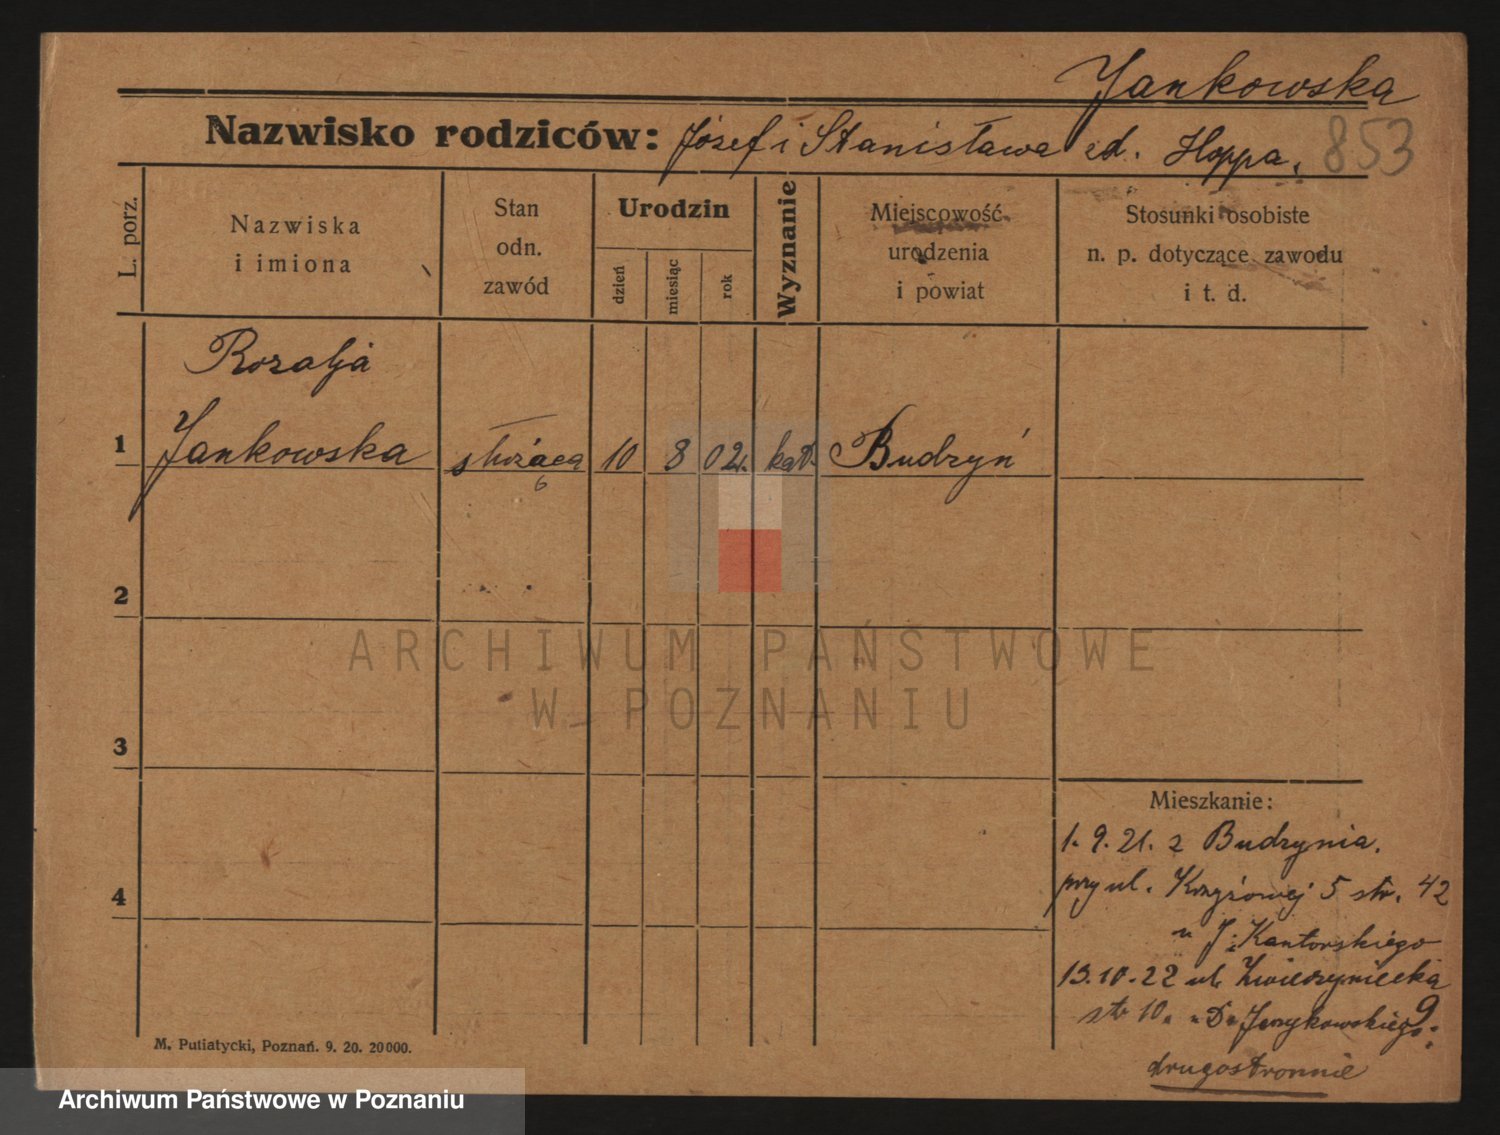 Jankowska
Nazwisko rodziców: Józef i Stanisława zd. Hoppa.
853
L. porz.
Nazwiska
i imiona
Stan
odn.
zawód
Urodzin
dzień
miesiąc
rok
Wyznanie
Miejscowość
urodzenia
i powiat
Stosunki osobiste
n. p. dotyczące zawodu
i t. d.
Rozalja
1 Jankowska służąca 10 8 02. kat. Budzyń
2
3
4
ARCHIWUM PAŃSTWOWE
W POZNANIU
Mieszkanie:
1. 9. 21. z Budzynia.
przy ul. Krzyżowej 5 str. 42
u J. Kantorskiego
13.10.22 ul. Zwierzyniecka 9
str 10. u Jerzykowskiego.
drugostronnie
M. Putiatycki, Poznań. 9. 20. 20000.
Archiwum Państwowe w Poznaniu